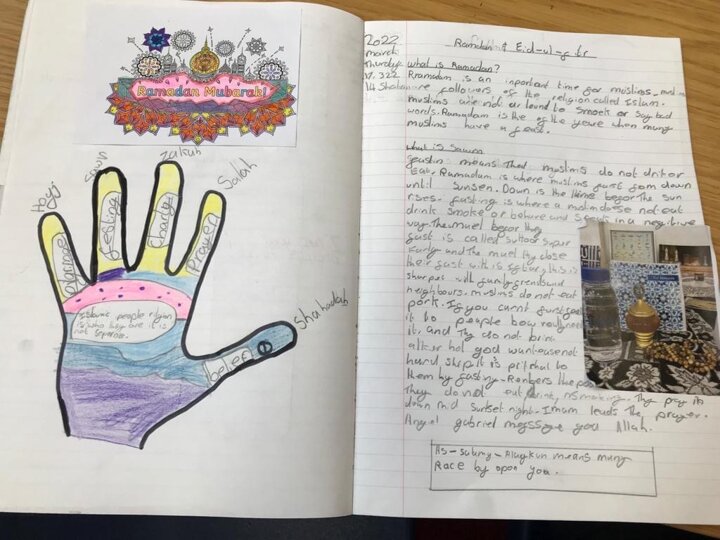 Ramadan Mubarak!
Hajj
Sawn
Zakah
Salah
Shahadah
fasting
Charity
Prayer
belief
Islamic people religion
is who they are it is
not seperate.
2022
march
Thursday
17. 322
14 Shaban
Ramadan & Eid-ul-fitr
what is Ramadan?
Ramadan is an inportant time for muslims.
are follouers of the religion called Islam.
muslims are not a lowd to smoek or Say bad
words. Ramadam is the of the yeare when many
muslims have a feast.
what is Sawm
means That muslims do not drit or
Eat. Ramadam is where muslims fast fom down
until Sunsen. Down is the time befor The sun
rises. fasting is where a muslim doese not eat
drink smoke or behave and Speak in a negitive
way. The muel befor they
fast is called suhoor super
Early and The muel thy close
their fast with is iftar, this is
with family frends and
neighbours. muslims do not eat
pork. If you carnt fast
it to people how
it. and Thy do not
hot god
hard
them by fasting.
They do not eat drink, no smoking. They pray in
down mid sunset night. Imam leads The prayer.
Angel gabriel messige you Allah.
As-salamu-Alaykum means many
Race by opon you.